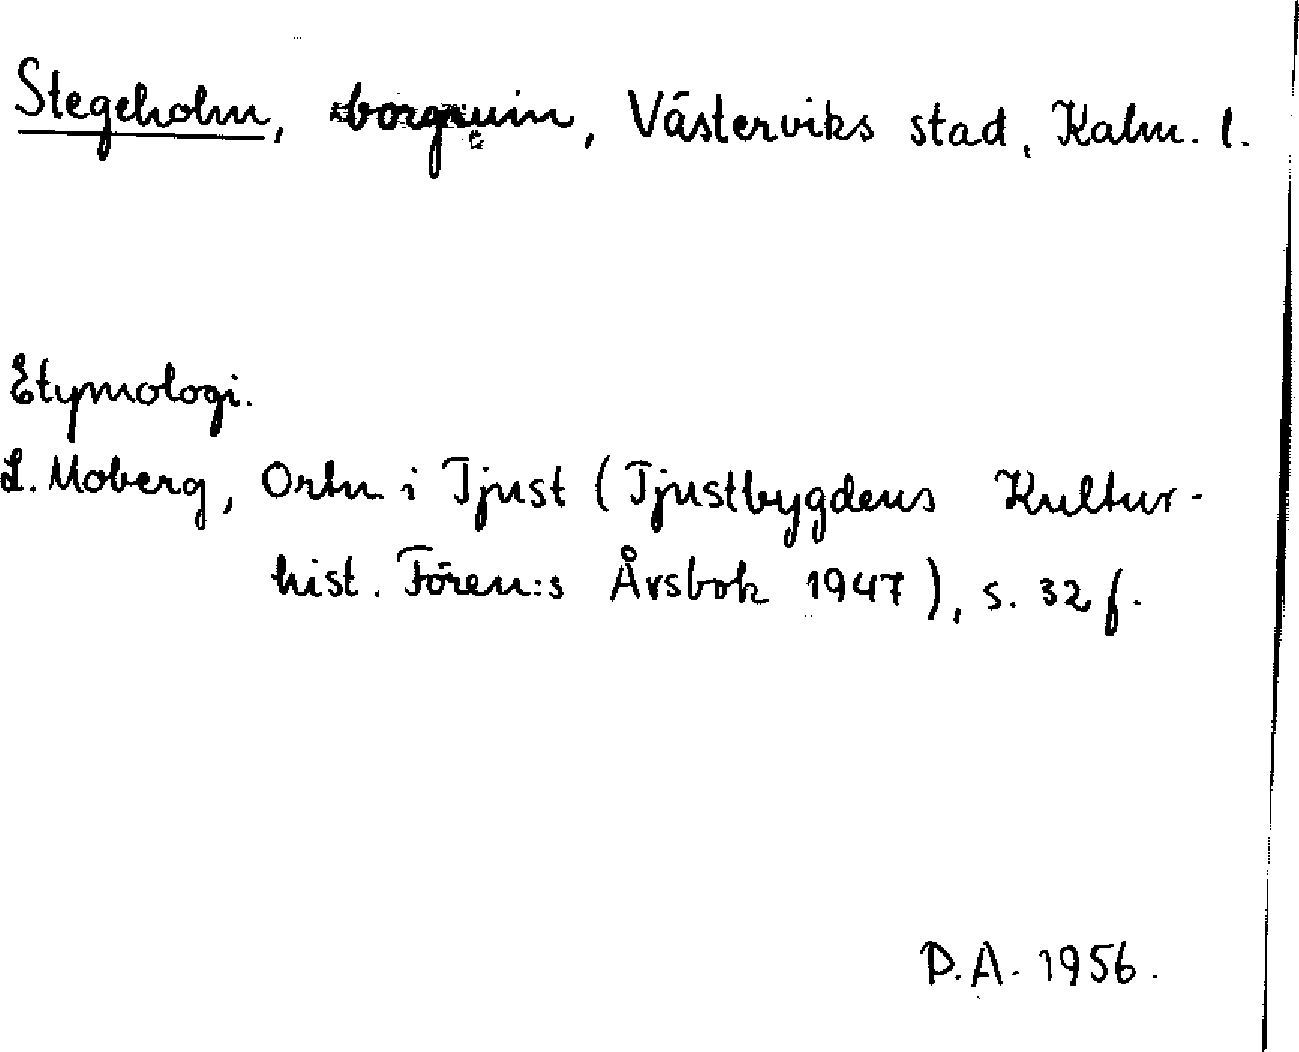 Stegeholm, borgruin, Västerviks stad, Kalm. l.
Etymologi.
L. Moberg, Ortn i Tjust (Tjustbygdens Kultur-
hist. Fören:s Årsbok 1947), s. 32 f.
D.A. 1956.